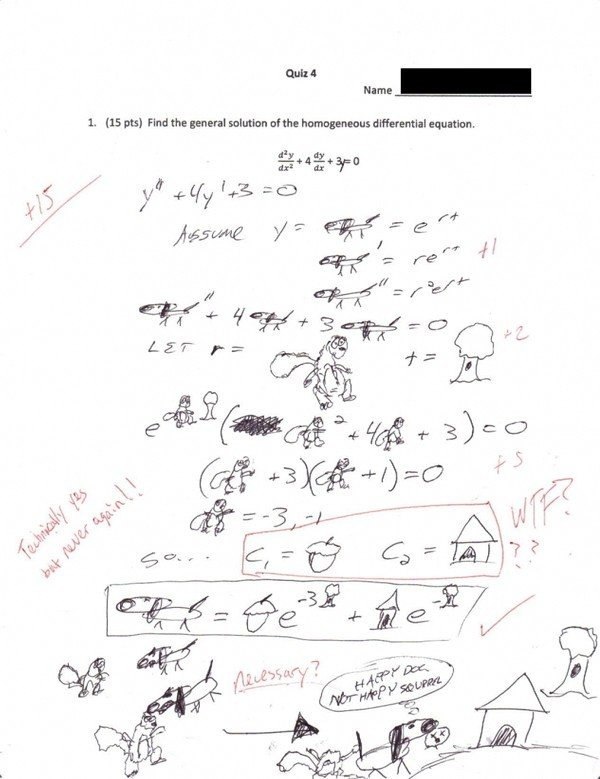 Quiz 4
Name
1. (15 pts) Find the general solution of the homogeneous differential equation.
d²y/dx² + 4 dy/dx + 3y = 0
+15
y" + 4y' + 3 = 0
Assume y = = e^rt
' = re^rt +1
" = r²e^rt
" + 4 + 3 = 0
LET r = t = +2
e ( ² + 4 + 3) = 0
( + 3)( + 1) = 0 +5
= -3, -1
Technically yes
but never again!!
WTF?
??
so... C₁ = C₂ =
= e^-3 + e^-
necessary?
HAPPY DOG
NOT HAPPY SQUIRREL